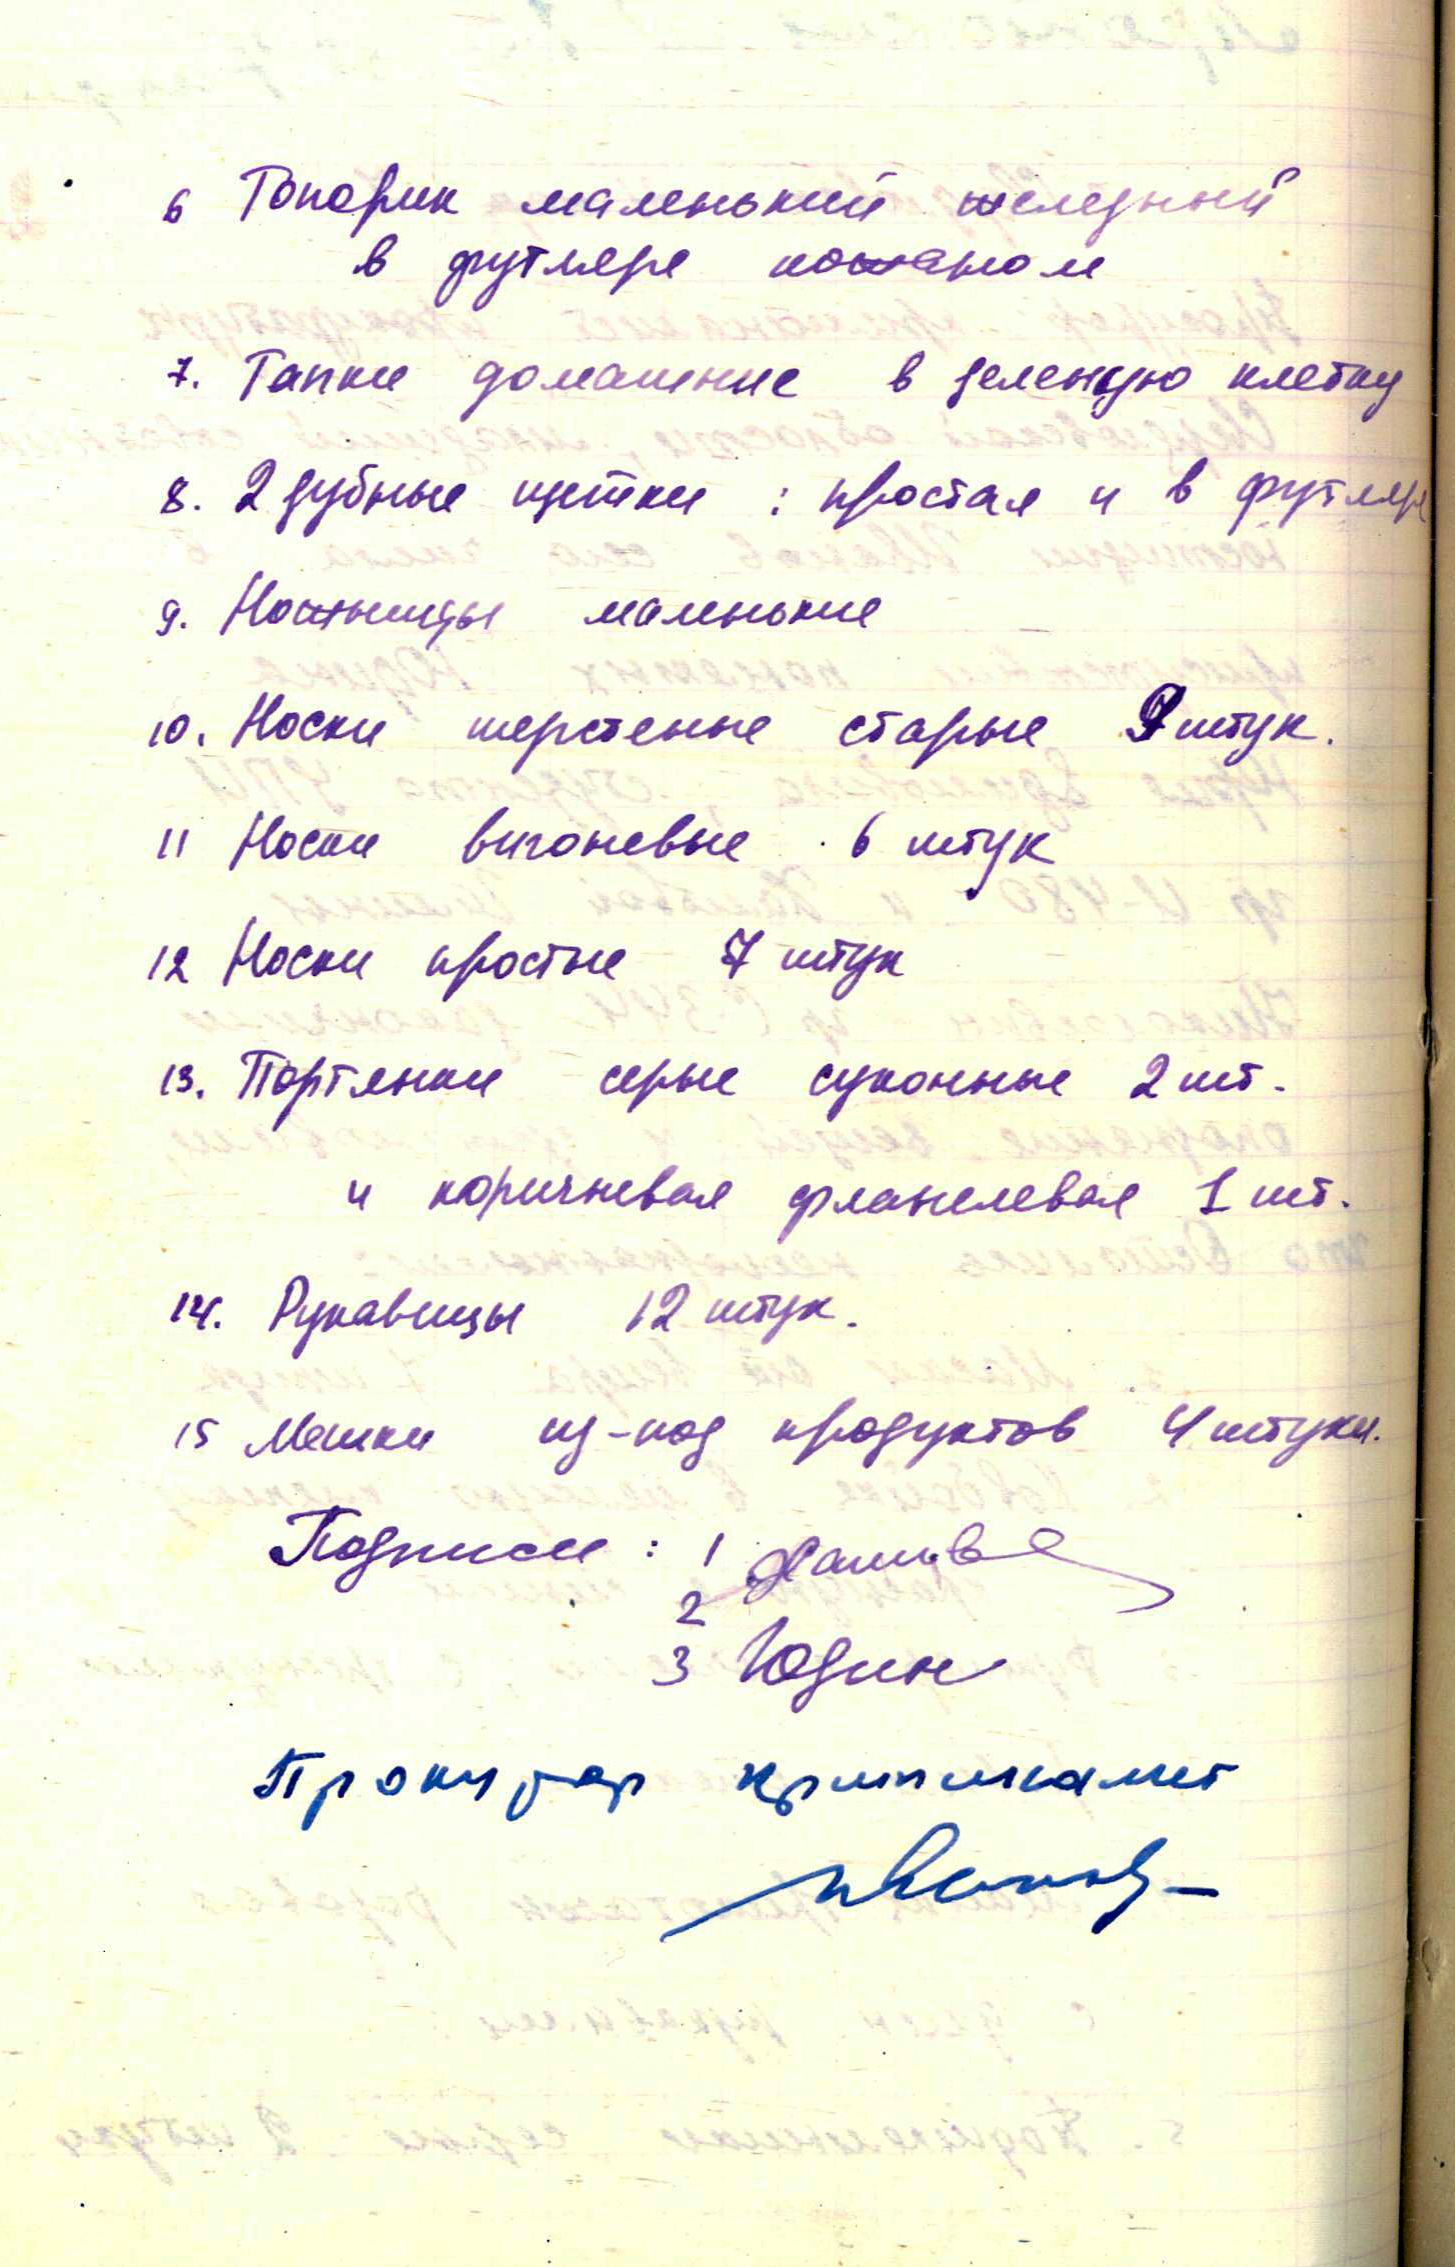 6 Топорик маленький железный
в футляре кожаном
7. Тапки домашние в зеленую клетку
8. 2 зубные щетки : простая и в футляре
9. Ножницы маленькие
10. Носки шерстеные старые 9 штук.
11 Носки вигоневые 6 штук
12 Носки простые 7 штук
13. Портянки серые суконные 2 шт.
и коричневая фланелевая 1 шт.
14. Рукавицы 12 штук.
15 Мешки из-под продуктов 4 штуки.
Подписи : 1
2
3 Юдин
Прокурор криминалист
Иванов